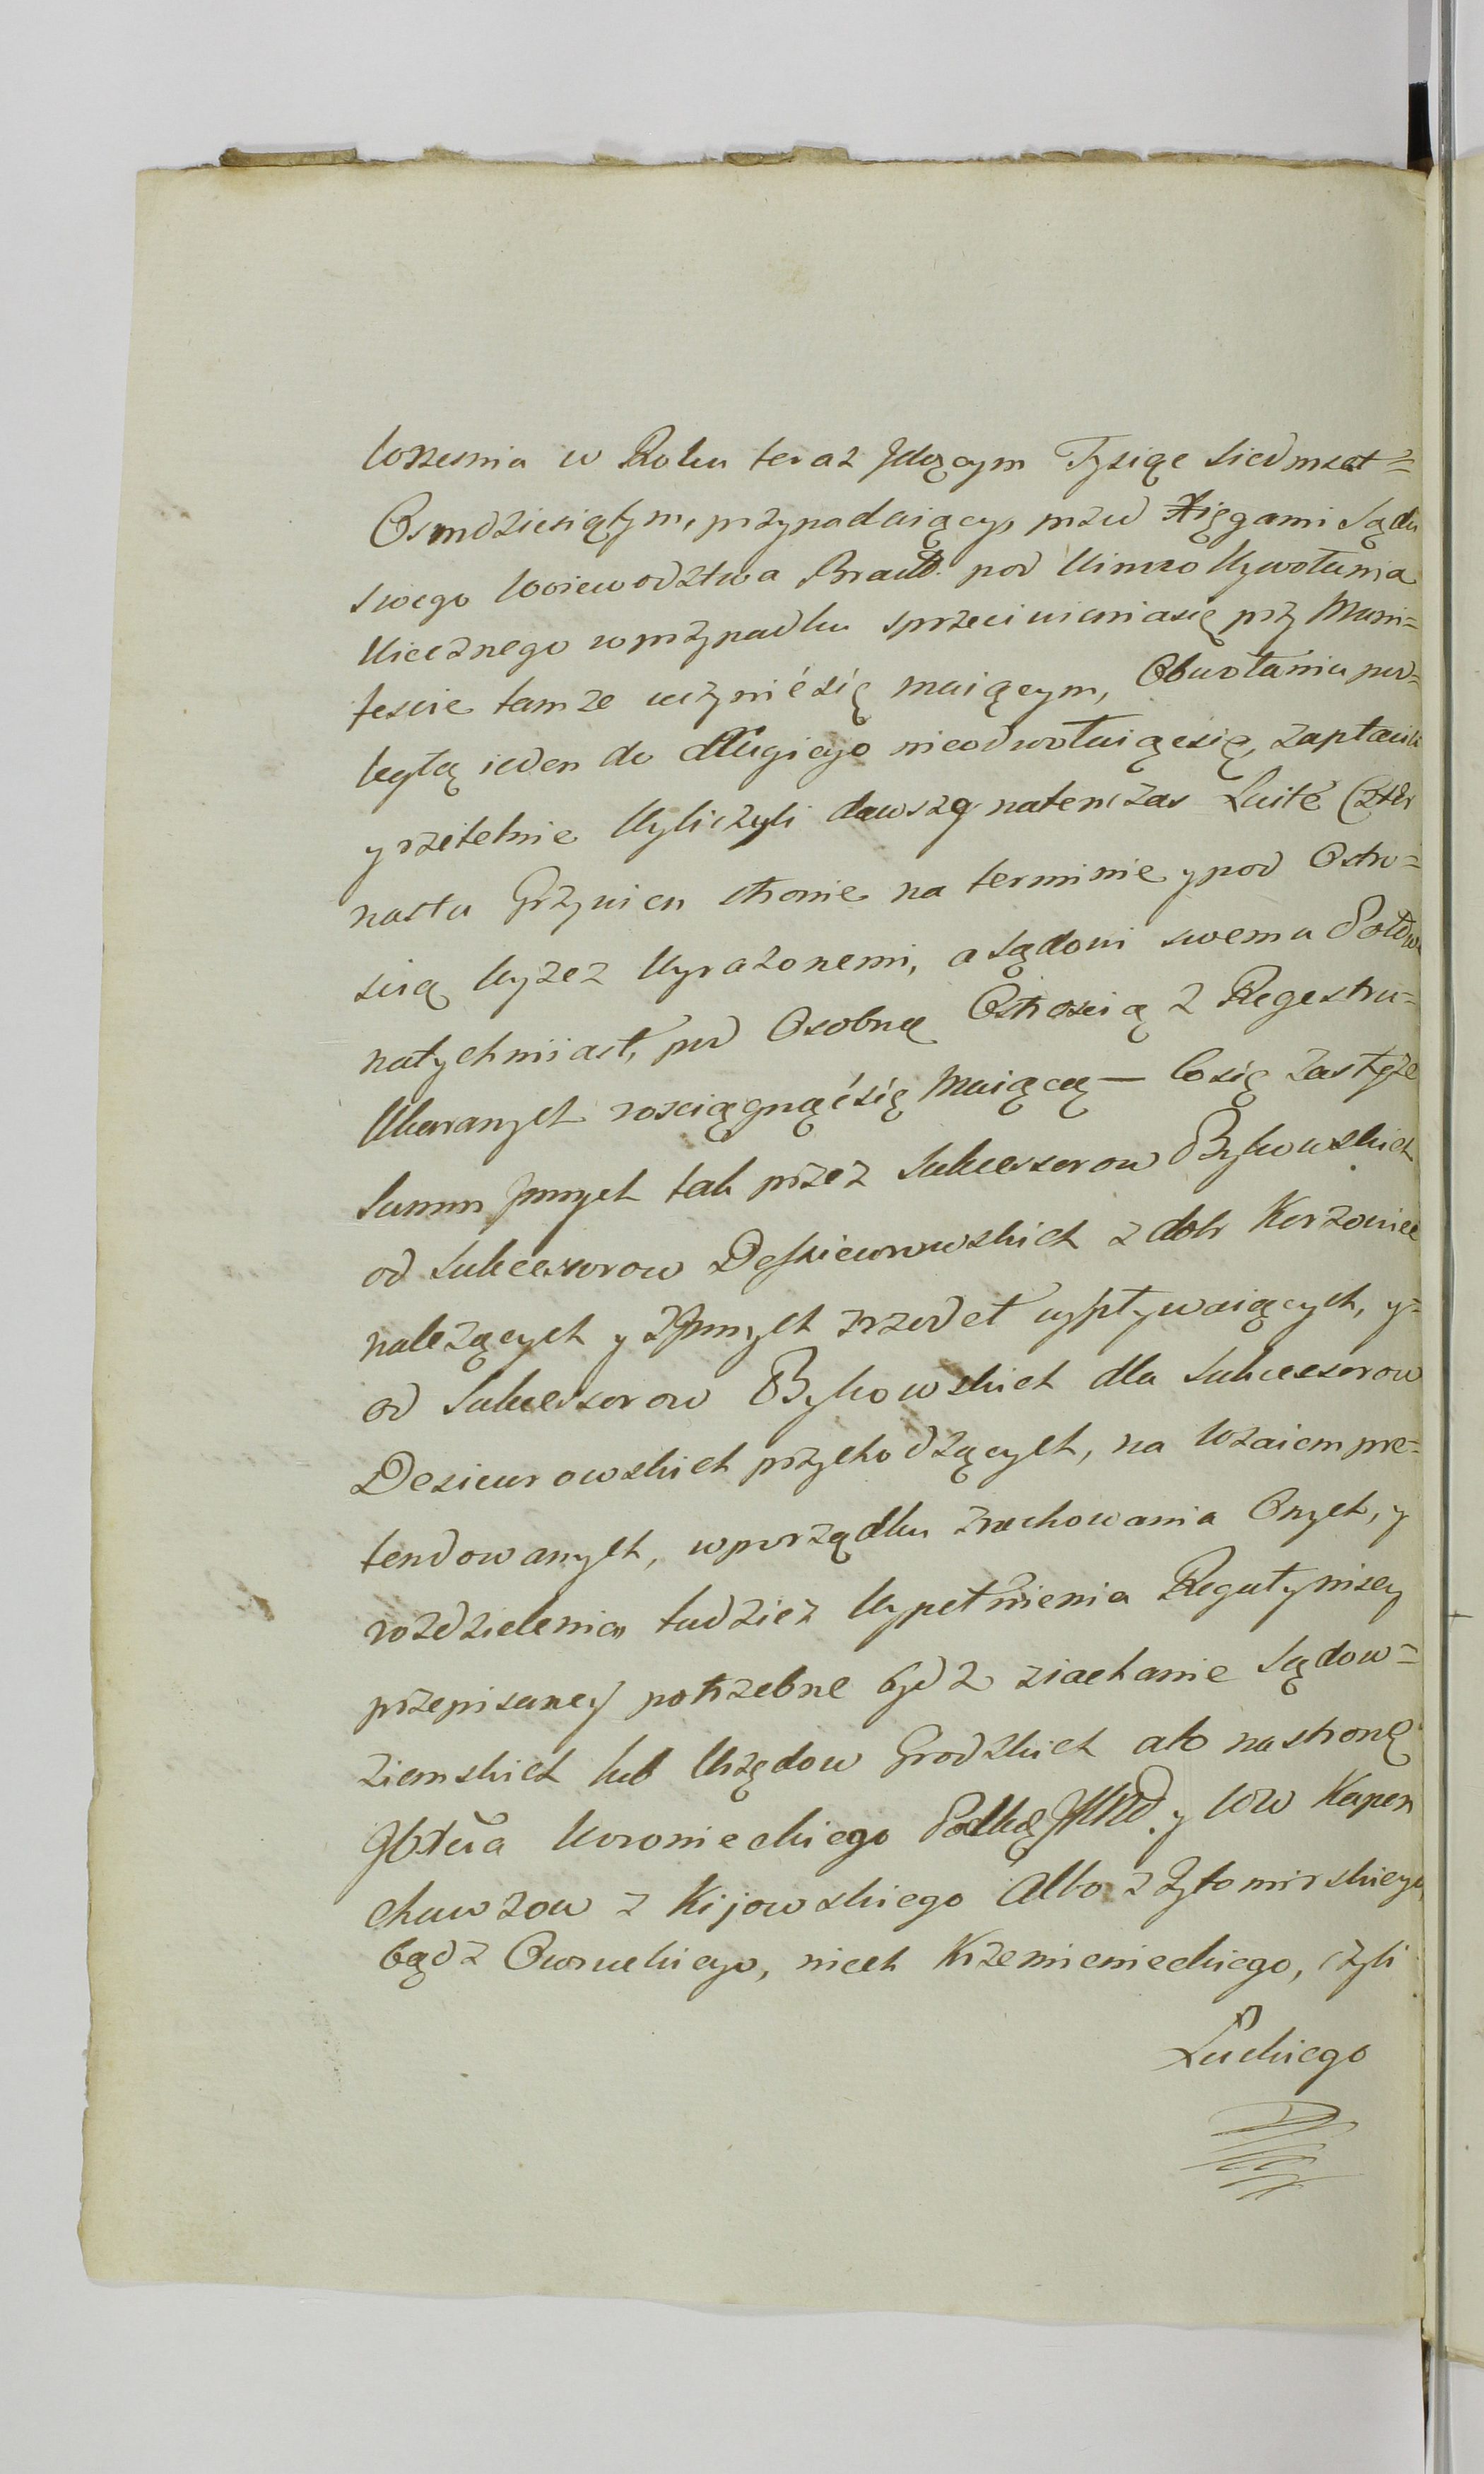 Wrzesnia w Roku teraz Jdącym Tysiąc Siedmset=
Osmdziesiątym, przypadaiący, przed Xięgami Sądu
swego Woiewodztwa Bracł. pod Winą Wywołania
Wiecznego w przypadku sprzeciwieniasię przy Mani=
fescie tamze uczynićsię maiącym, Obwołania pod=
ległą ieden do długiego nieodwołuiącsię, zapłacili
y rzetelnie Wyliczyli dawszą natenczas Luitę Czter
nastu Grzywien stronie na terminie y pod Ostro=
scią Wyzez Wyrażonemi, a Sądowi swemu Połową
natychmiast, pod Osobną Ostroscią z Regestru=
Ukaranych rosciągnąćsię Maiącą — Cosię zastycze
Summ Jnnych tak przez Sukcessorow Bykowskich
od Sukcessorow Desieurowskich z dobr Korzowiec
należących y z Jnnych zrzodeł wypływaiących, y=
od Sukcessorow Bykowskich dla Sukcessorow
Desieurowskich przychodzących, na Wzaiem pre=
tendowanych, w porządku zrachowania Onych, y
rozdzielenia tudziez Wypełnienia Reguły nizey
przepisaney potrzebne bydz ziachanie Sądow=
Ziemskich lub Urzędow Grodzkich albo na stronę
Woronieckiego y WW Kapen
chauzow z Kijowskiego Albo z Zytomirskiego
bądz Owruckiego, niech Krzemienieckiego, czyli
Łuckiego